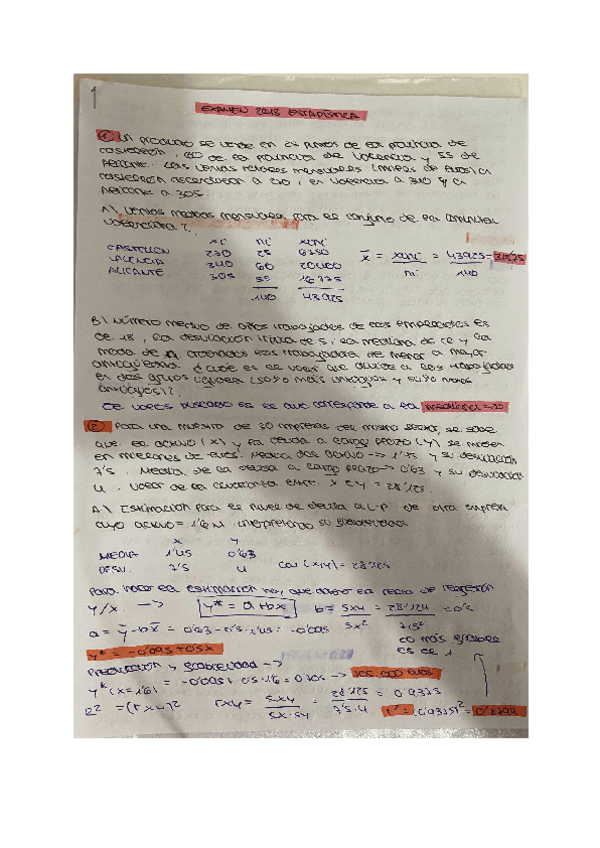 1
EXAMEN 2018 ESTADÍSTICA
1 Un producto se vende en 25 puntos de la provincia de
Castellón, 60 de la provincia de Valencia y 55 de
Alicante. Las ventas medias mensuales (miles de euros) en
Castellón ascendieron a 270, en Valencia a 340 y en
Alicante a 305.
A) Ventas medias mensuales para el conjunto de la comunidad
valenciana?
xi ni xini
CASTELLÓN 270 25 6750
VALENCIA 340 60 20400
ALICANTE 305 55 16775
140 43925
x̄ = xini / ni = 43925 / 140 = 313'75
B) Número medio de años trabajados de los empleados es
de 18, la desviación típica de 5, la mediana de y la
moda de ordenados los trabajadores de menor a mayor
antigüedad ¿cuál es el valor que divide a los trabajadores
en dos grupos (50% más antiguos y 50% menos
antiguos)?
El valor buscado es el que corresponde a la mediana
2 Para una muestra de 30 empresas del mismo sector, se sabe
que el activo (X) y la deuda a largo plazo (Y), se miden
en millones de euros. Media del activo -> 1'45 y su desviación
7'5. Media de la deuda a largo plazo -> 0'63 y su desviación
4. Valor de la covarianza entre x e y = 28'125.
A) Estimación para el nivel de deuda a L.P de otra empresa
cuyo activo = 1'6 M. interpretando su fiabilidad
x y
MEDIA 1'45 0'63
DESV. 7'5 4
Cov (x,y) = 28'125
Para hacer la estimación hay que obtener la recta de regresión
Y/X. -> y* = a+bx b = Sxy / Sx² = 28'124 / 7'5² = 0'5
a = ȳ - bx̄ = 0'63 - 0'5·1'45 = -0'095
y* = -0'095 + 0'5x
lo más fiable
es el 1.
Predicción y fiabilidad ->
y*(x=1'6) = -0'095 + 0'5·1'6 = 0'705 -> 705.000 euros
R² = (rxy)² rxy = Sxy / Sx·Sy = 28'125 / 7'5·4 = 0'9375 r² = (0'9375)² = 0'8789